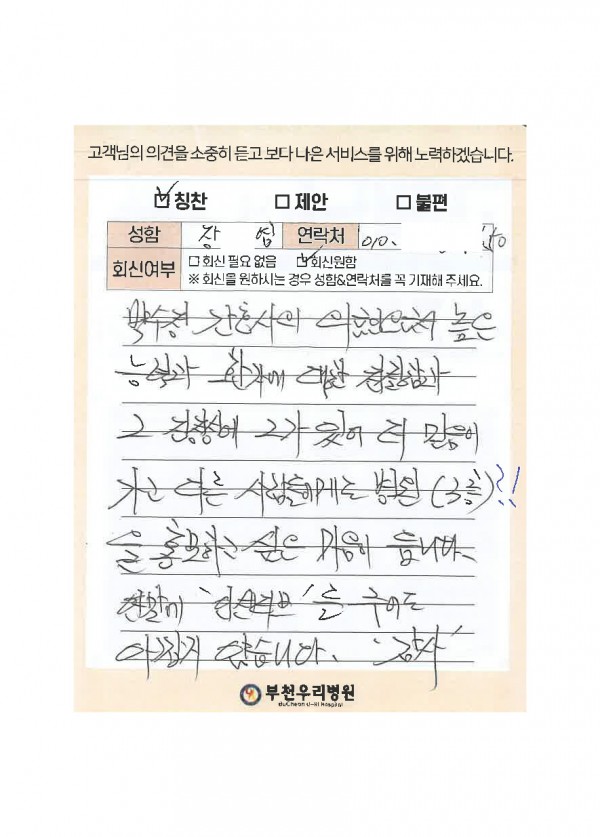 고객님의 의견을 소중히 듣고 보다 나은 서비스를 위해 노력하겠습니다.
☑ 칭찬 □ 제안 □ 불편
성함 장 심 연락처 010.
회신여부 □ 회신 필요 없음 ☑ 회신원함
※ 회신을 원하시는 경우 성함&연락처를 꼭 기재해 주세요.
박수정 간호사의 높은
능력과 환자에 대한 친절함과
그 에 그가 있어 더 믿음이
가고 다른 사람들에게는 병원 (3층)?!
을 홍보하고 싶은 마음이 듭니다.
연말에 를 주어도
아깝지 않습니다. '감사'
부천우리병원
BuCheon U-Ri Hospital